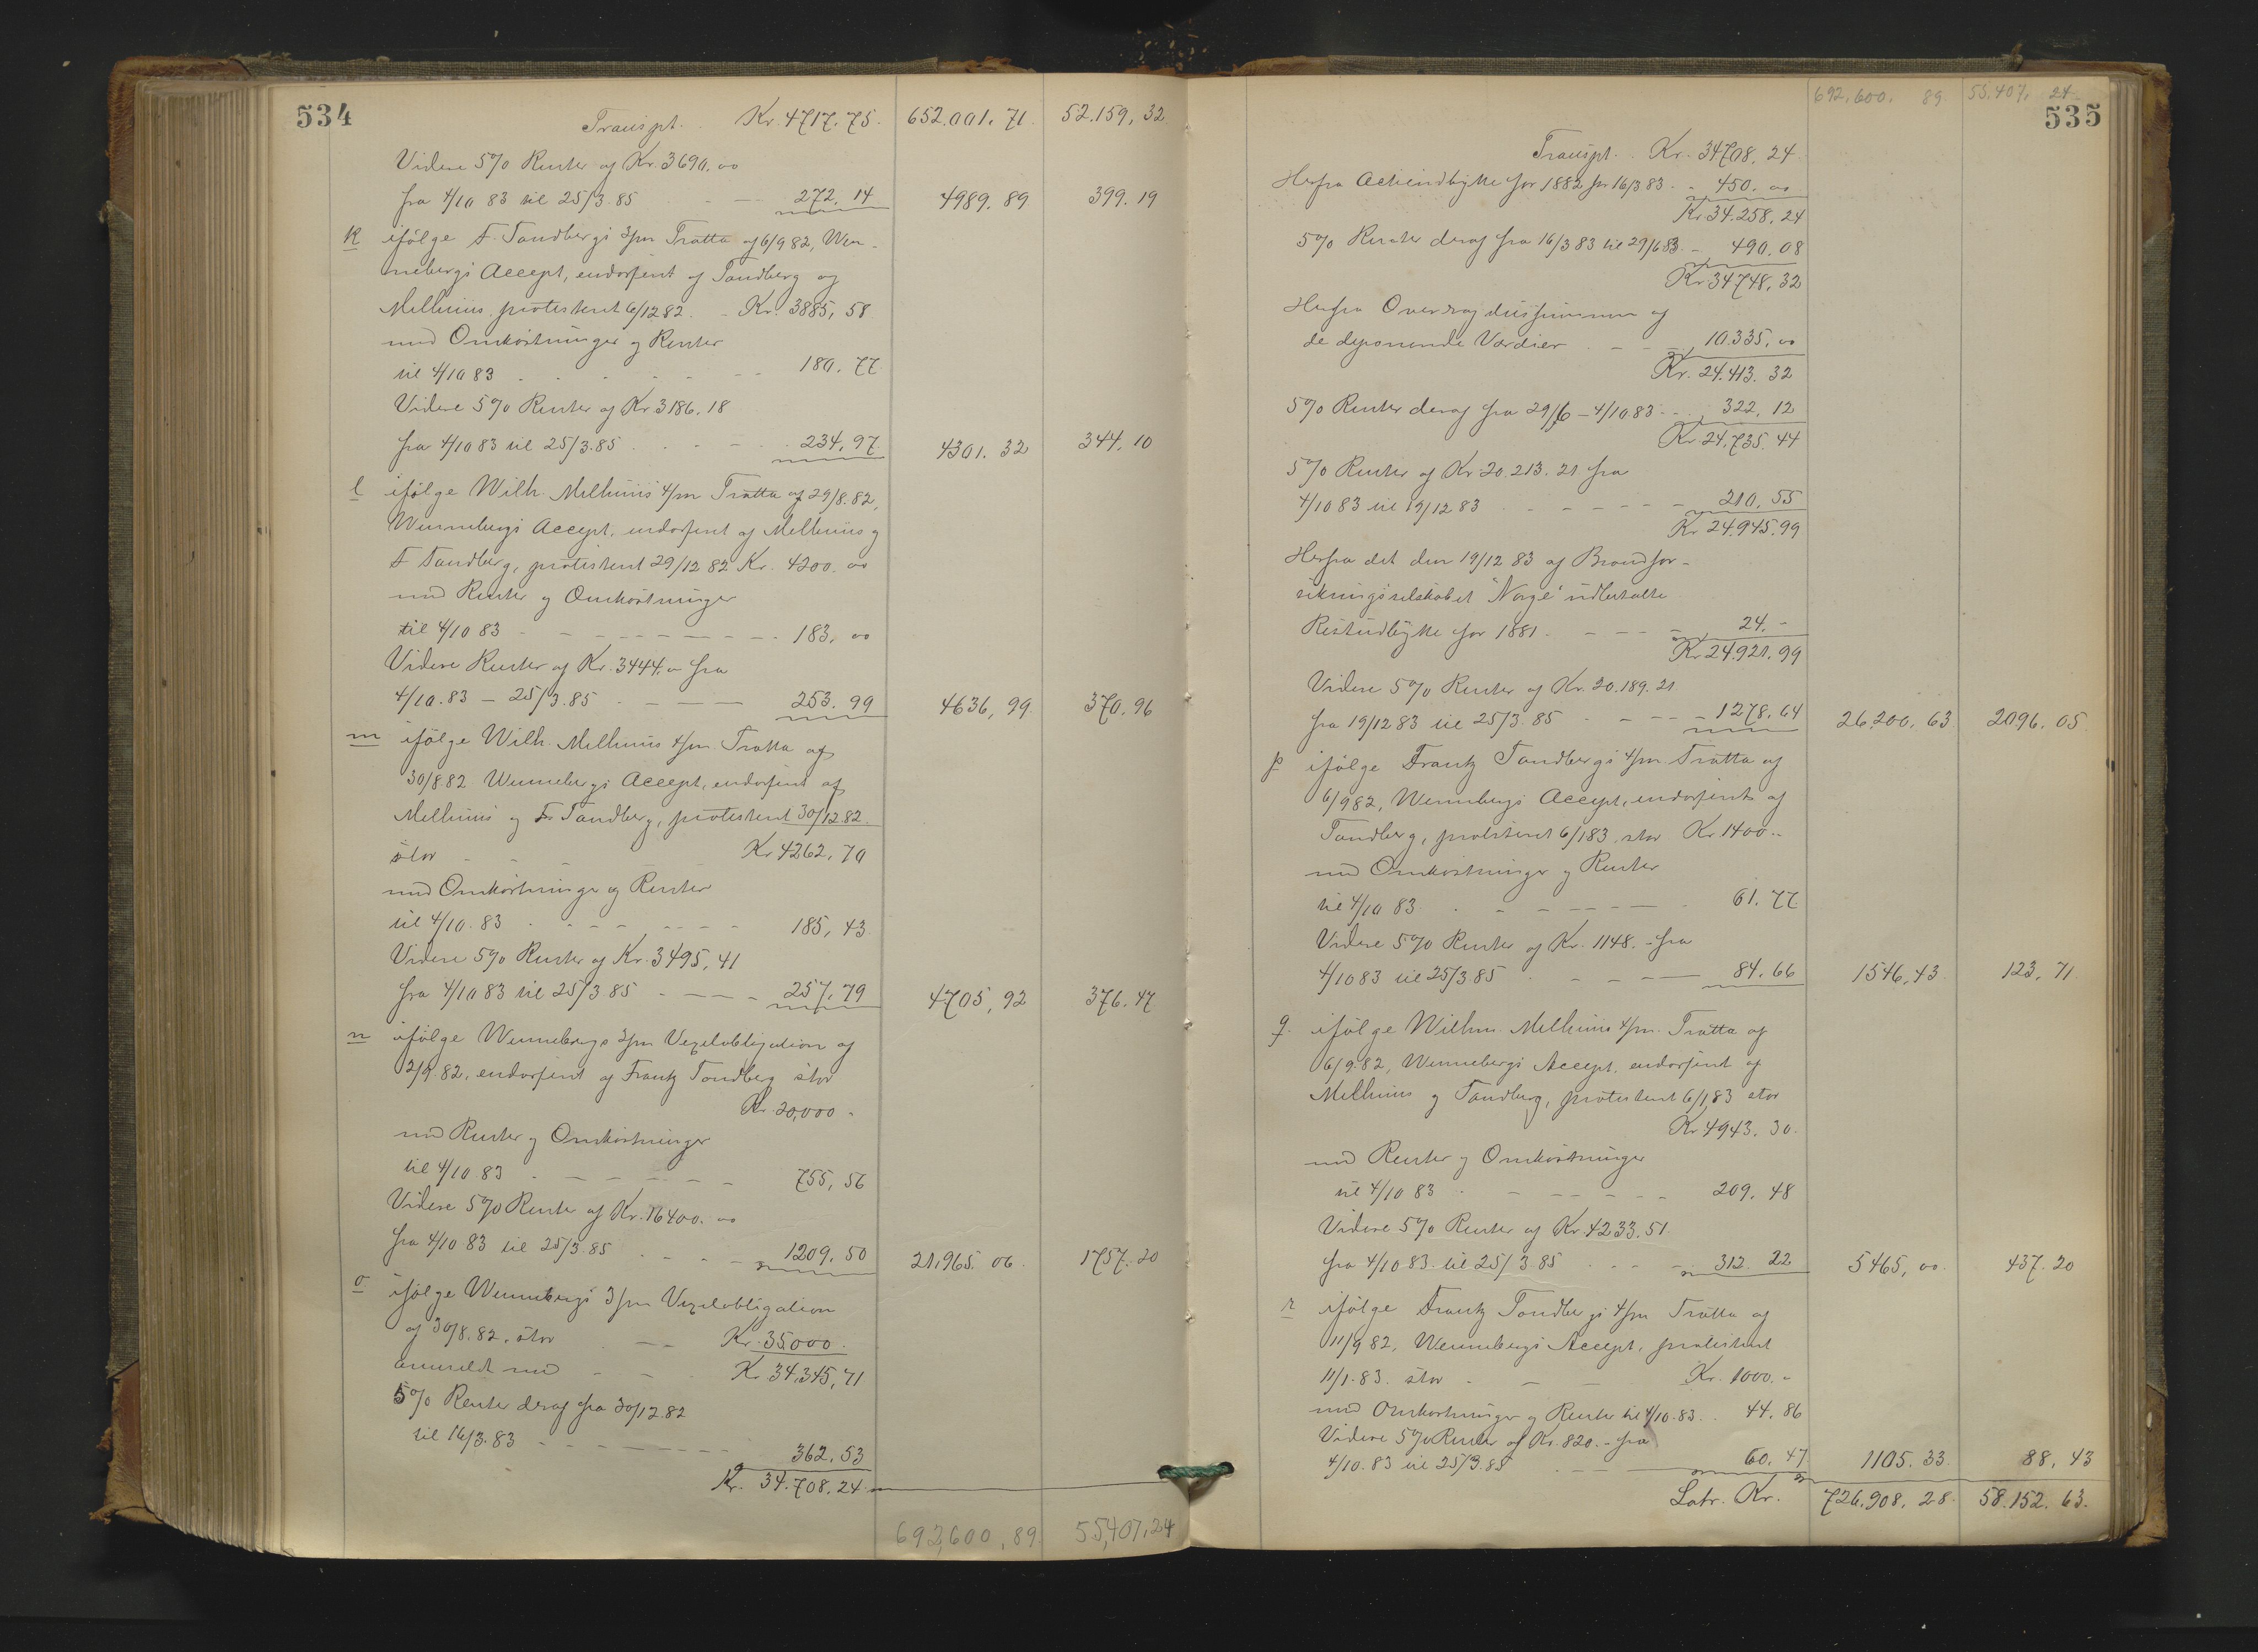 534
Transpt. Kr. 4717. 75. 652.001. 71. 52.159, 32
Videre 5% Renter af Kr. 3690. 00
fra 4/10 83 til 25/3. 85 - - 272. 14 4989. 89 399. 19
k ifölge F. Tandbergs 3/m Tratta af 6/9 82, Wen-
nebergs Accept, endosseret af Tandberg og
Melhuus, protesteret 6/12 82. - Kr. 3885, 58
med Omkostninger og Renter
til 4/10 83 - - - - - - - 180. 77.
Videre 5% Renter af Kr. 3186. 18
fra 4/10 83 til 25/3. 85 - - - - 234, 97. 4301. 32 344, 10
l ifölge Wilh. Melhuus 4/m Tratta af 29/8. 82,
Wennebergs Accept, endosseret af Melhuus og
F. Tandberg, protesteret 29/12 82 Kr. 4200. 00
med Renter og Omkostninger
til 4/10 83 - - - - - - - - 183. 00
Videre Renter af Kr. 3444.- fra
4/10. 83 - 25/3. 85 - - - - 253. 99 4636, 99. 370. 96
m ifölge Wilh. Melhuus 4/m Tratta af
30/8 82 Wennebergs Accept, endosseret af
Melhuus og Fr. Tandberg, protesteret 30/12. 82.
stor - - - - Kr 4262, 70
med Omkostninger og Renter
til 4/10. 83 - - - - - - - 185, 43.
Videre 5% Renter af Kr. 3495, 41
fra 4/10 83 til 25/3 85 - - - - 257, 79 4705, 92 376. 47.
n ifölge Wennebergs 3/m Vexelobligation af
2/9. 82, endosseret af Frantz Tandberg stor
Kr. 20,000 -
med Renter og Omkostninger
til 4/10. 83 - - - - - - 755, 56
Videre 5% Renter af Kr. 16400. 00
fra 4/10 83 til 25/3. 85 - - - - 1209, 50 21,965. 06. 1757. 20
o ifölge Wennebergs 3/m Vexelobligation
af 30/8. 82, stor - - Kr. 35000.
anmeldt med - - - Kr 34,345, 71
5% Renter deraf fra 30/12. 82
til 16/3. 83 - - - - - - - - 362, 53
Kr. 34.708. 24
692,600, 89. 55,407, 24
692,600. 89 55.407, 24
535
Transpt. . Kr. 34708, 24.
Herfra Actieudbytte for 1882 pr 16/3 83 - - 450. 00
Kr 34.258, 24
5% Renter deraf fra 16/3 83 til 29/6 83 - 490. 08
Kr 34748, 32
Herfra Overdragelsessummen af
de deponerede Værdier - - - 10.335, 00
Kr. 24.413. 32
5% Renter deraf fra 29/6 - 4/10 83 - - 322, 12
Kr. 24,735. 44
5% Renter af Kr 20. 213. 21 fra
4/10 83 til 19/12 83 - - - - - - 210, 55
Kr 24.945. 99
Herfra det den 19/12 83 af Brandfor-
sikringsselskabet "Norge" udbetalte
Restudbytte for 1881 - - - - 24. -
Kr 24.921. 99
Videre 5% Renter af Kr. 20. 189. 21
fra 19/12 83 til 25/3. 85 - - - - 1278, 64 26,200, 63 2096. 05
p ifölge Frantz Tandbergs 4/m Tratta af
6/9 82, Wennebergs Accept, endosseret af
Tandberg, protesteret 6/1 83, stor Kr 1400 -
med Omkostninger og Renter
til 4/10 83 - - - - - - - 61. 77.
Videre 5% Renter af Kr. 1148. - fra
4/10 83 til 25/3 85 - - - - 84, 66 1546, 43. 123, 71.
q. ifölge Wilhm. Melhuus 4/m Tratta af
6/9. 82, Wennebergs Accept, endosseret af
Melhuus og Tandberg, protesteret 6/1 83 stor
Kr 4943. 30.
med Renter og Omkostninger
til 4/10 83 - - - - - - - 209, 48
Videre 5% Renter af Kr. 4233. 51.
fra 4/10 83. til 25/3 85 - - - - 312. 22 5465, 00. 437. 20
r ifölge Frantz Tandbergs 4/m Tratta af
11/9 82, Wennebergs Accept, protesteret
11/1. 83. stor - - - Kr. 1000. -
med Omkostninger og Renter til 4/10. 83. . 44, 86
Videre 5% Renter af Kr. 820. - fra
4/10. 83 til 25/3. 85 - - - 60, 47 1105. 33. 88, 43
Latr. Kr. 726,908, 28. 58.152. 63.